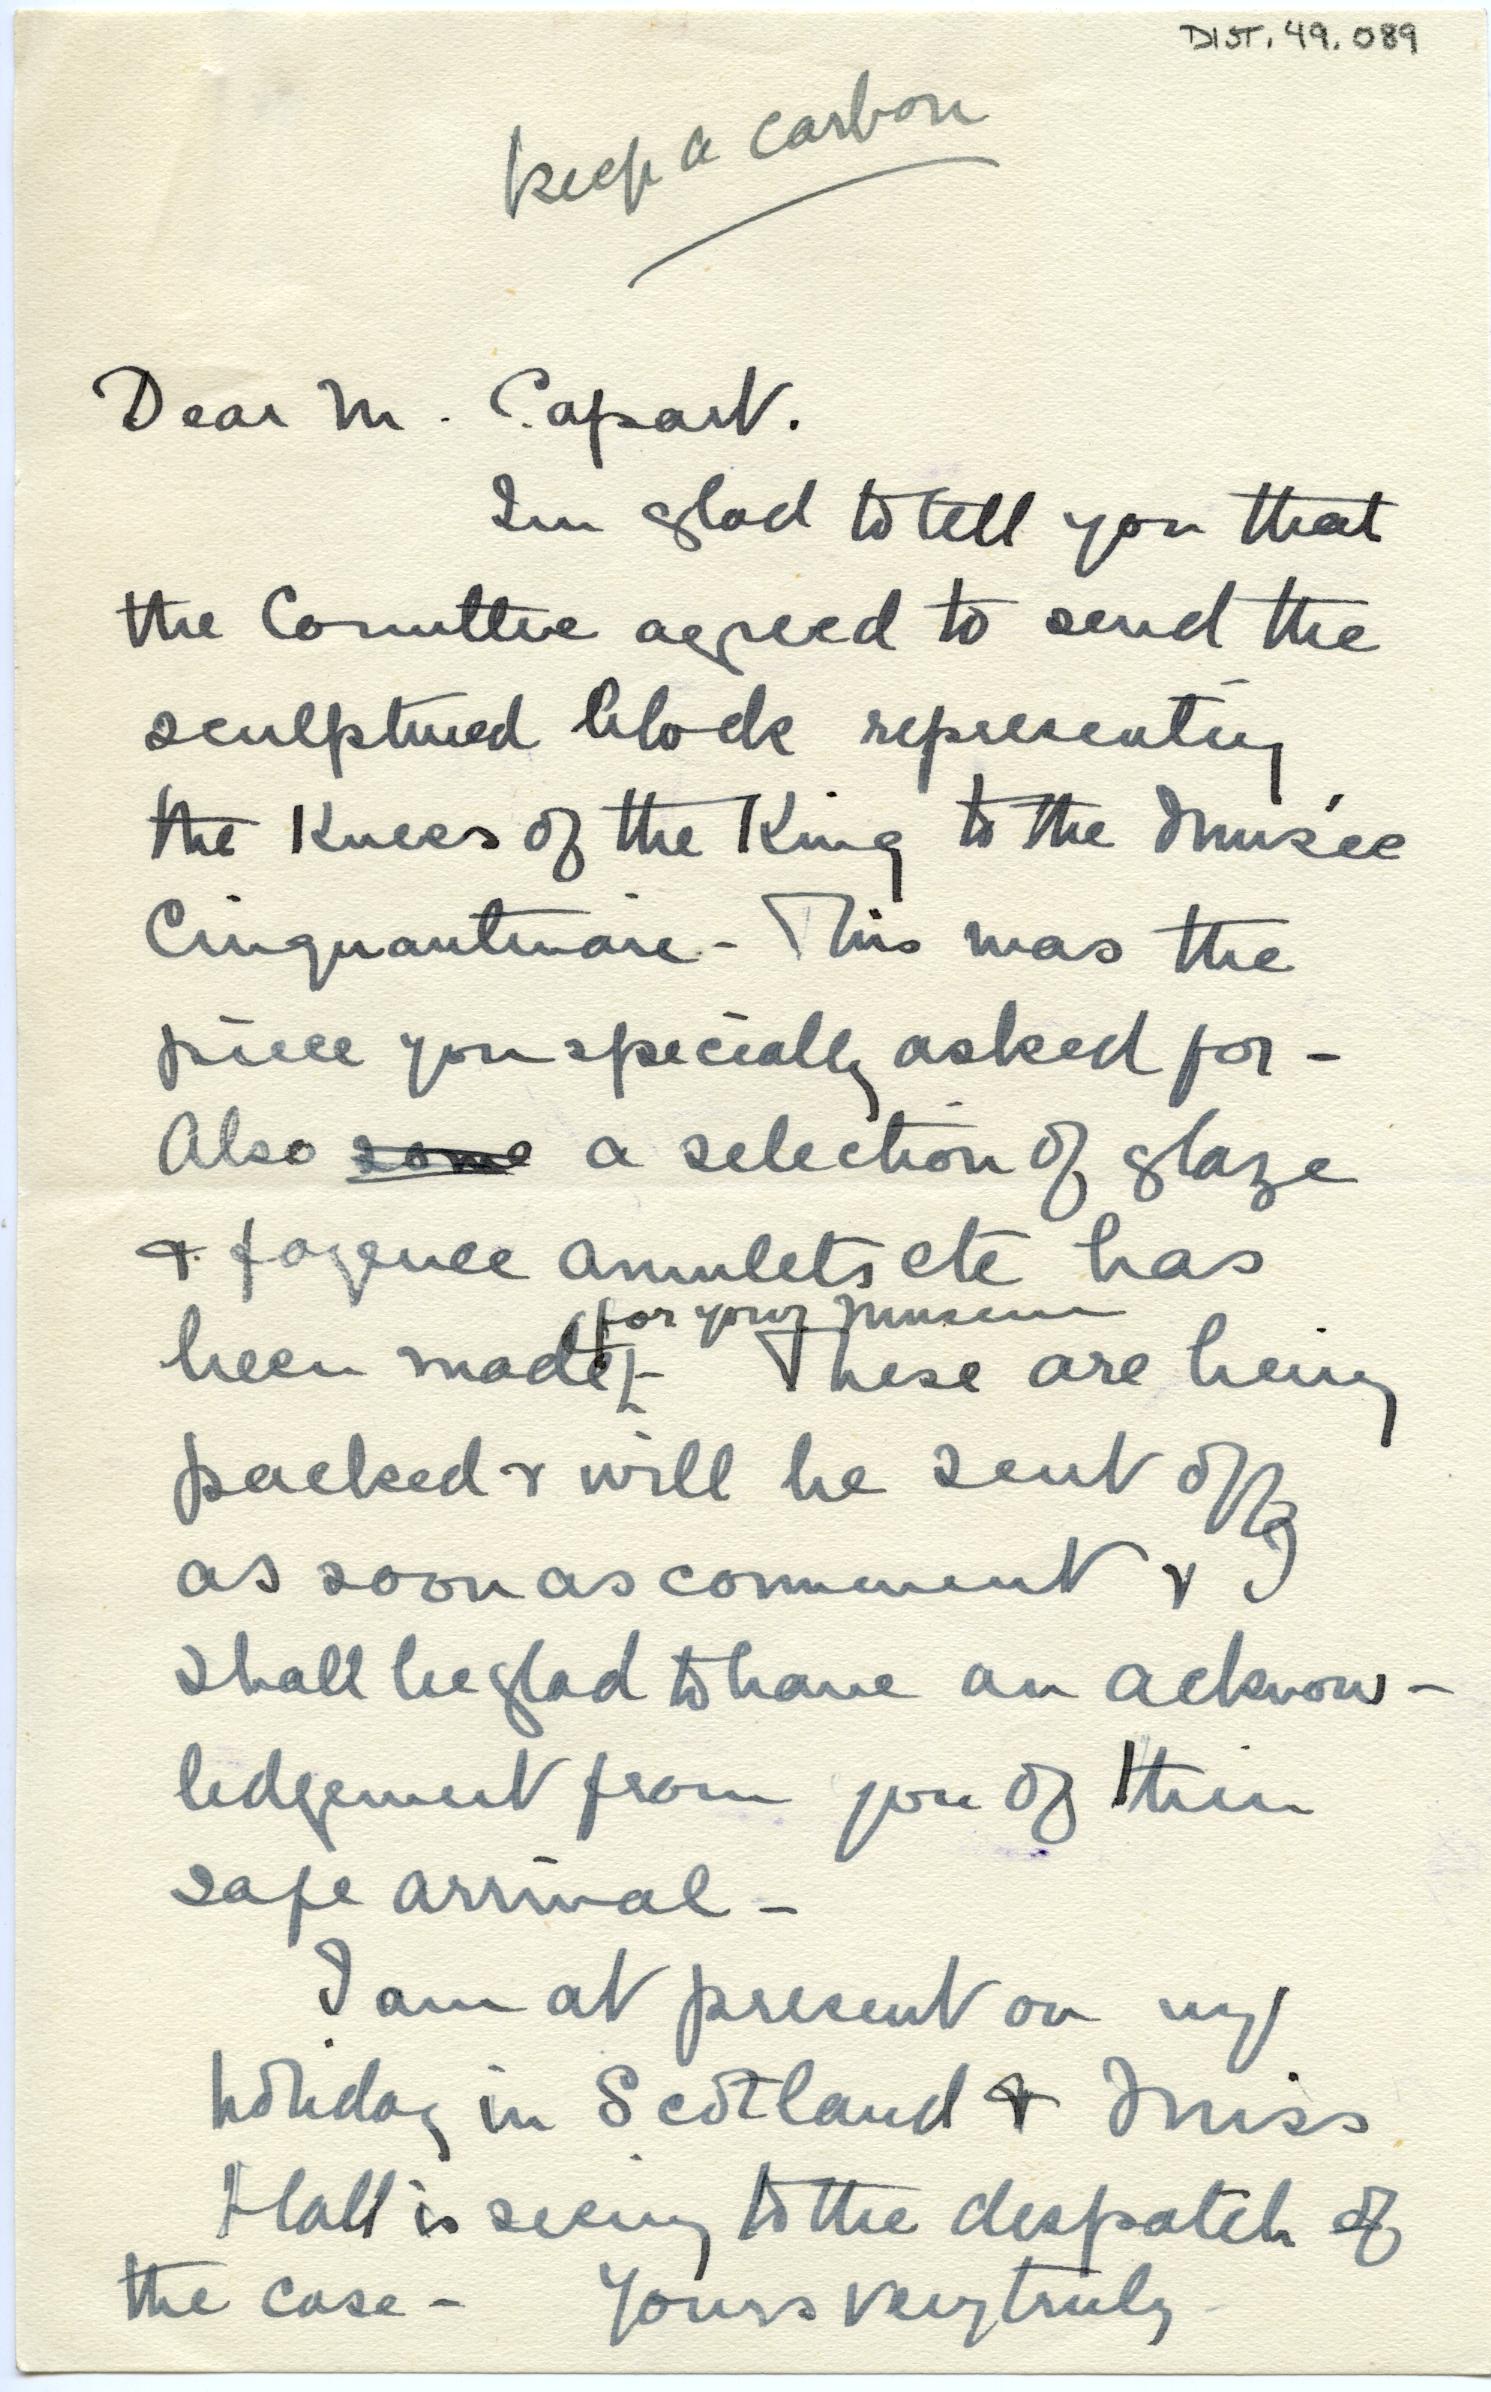 DIST. 49. 089
keep a carbon
Dear M. Capart.
Im glad to tell you that
the Committee agreed to send the
sculptured block representing
the Knees of the King to the Musée
Cinquantenaire - This was the
piece you specially asked for -
Also some a selection of glaze
& fayence amulets etc has
for your museum
been made - These are being
packed & will be sent off
as soon as convenient & I
shall be glad to have an acknow-
ledgement from you of their
safe arrival -
I am at present on my
holiday in Scotland & Miss
Hall is seeing to the despatch of
the case - Yours very truly